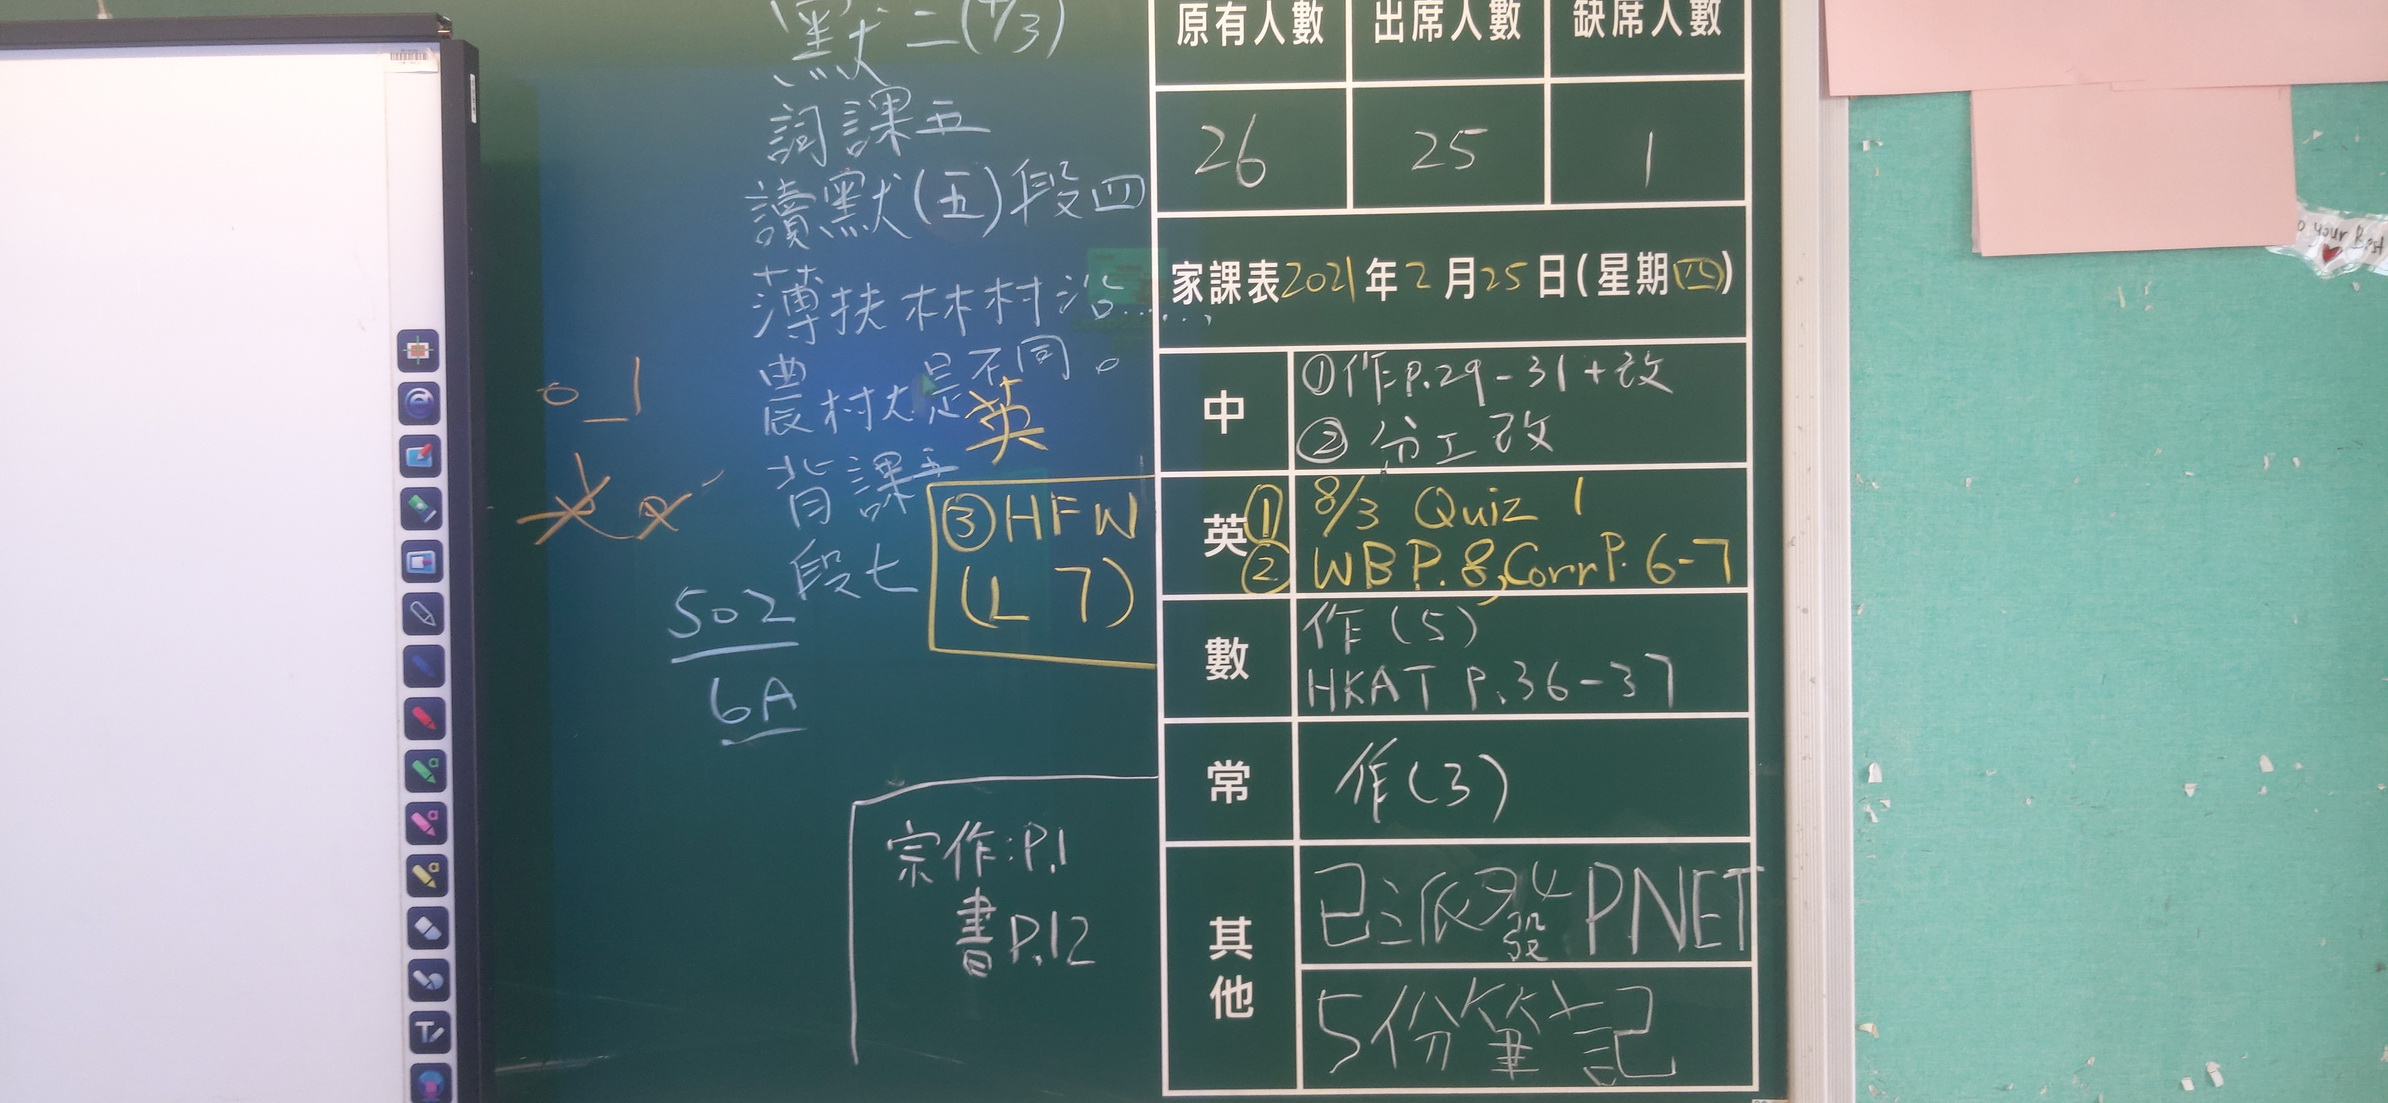 默二(4/3)
詞課五
讀默(五)段四
薄扶林村沿......,
農村大是不同。
背課五
段七
英
③HFW
(L 7)
502
6A
宗作:P.1
書P.12
原有人數 出席人數 缺席人數
26 25 1
家課表2021年2月25日(星期四)
中 ①作P.29-31+改
②分工改
英① 8/3 Quiz 1
② WB P.8, Corr P.6-7
數 作(5)
HKAT P.36-37
常 作(3)
其他 已派發PNET
5份筆記
your Best